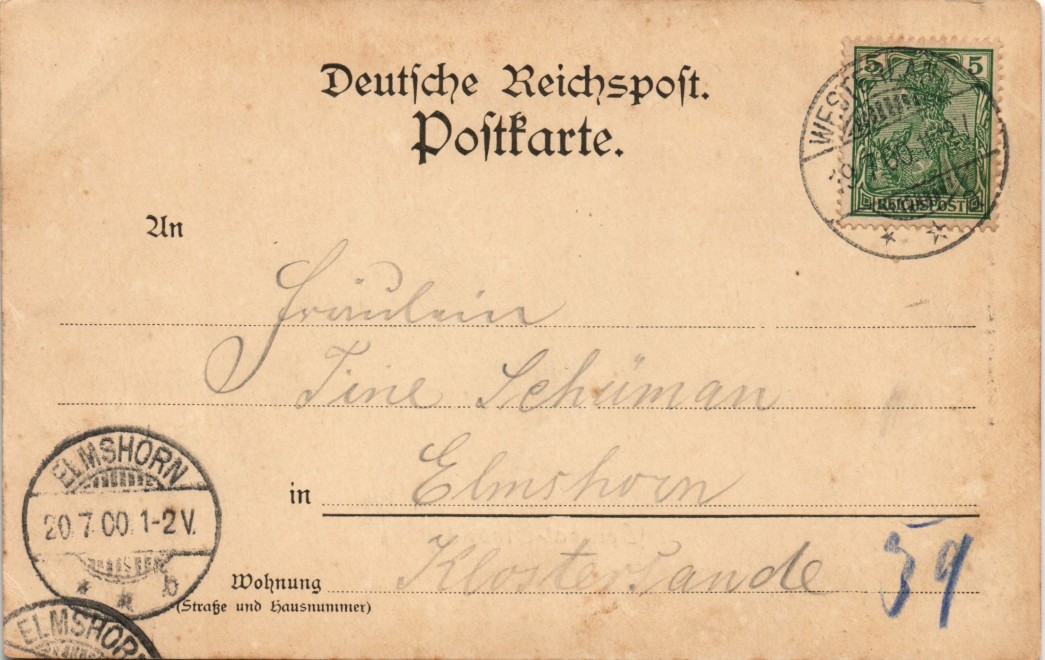 Deutsche Reichspost.
Postkarte.
5 5
REICHSPOST
19.7.00
An
Fräulein
Tine Schüman
in Elmshorn
Klostersande
Wohnung
(Straße und Hausnummer)
59
ELMSHORN
20.7.00.1-2V.
* * b
ELMSHORN